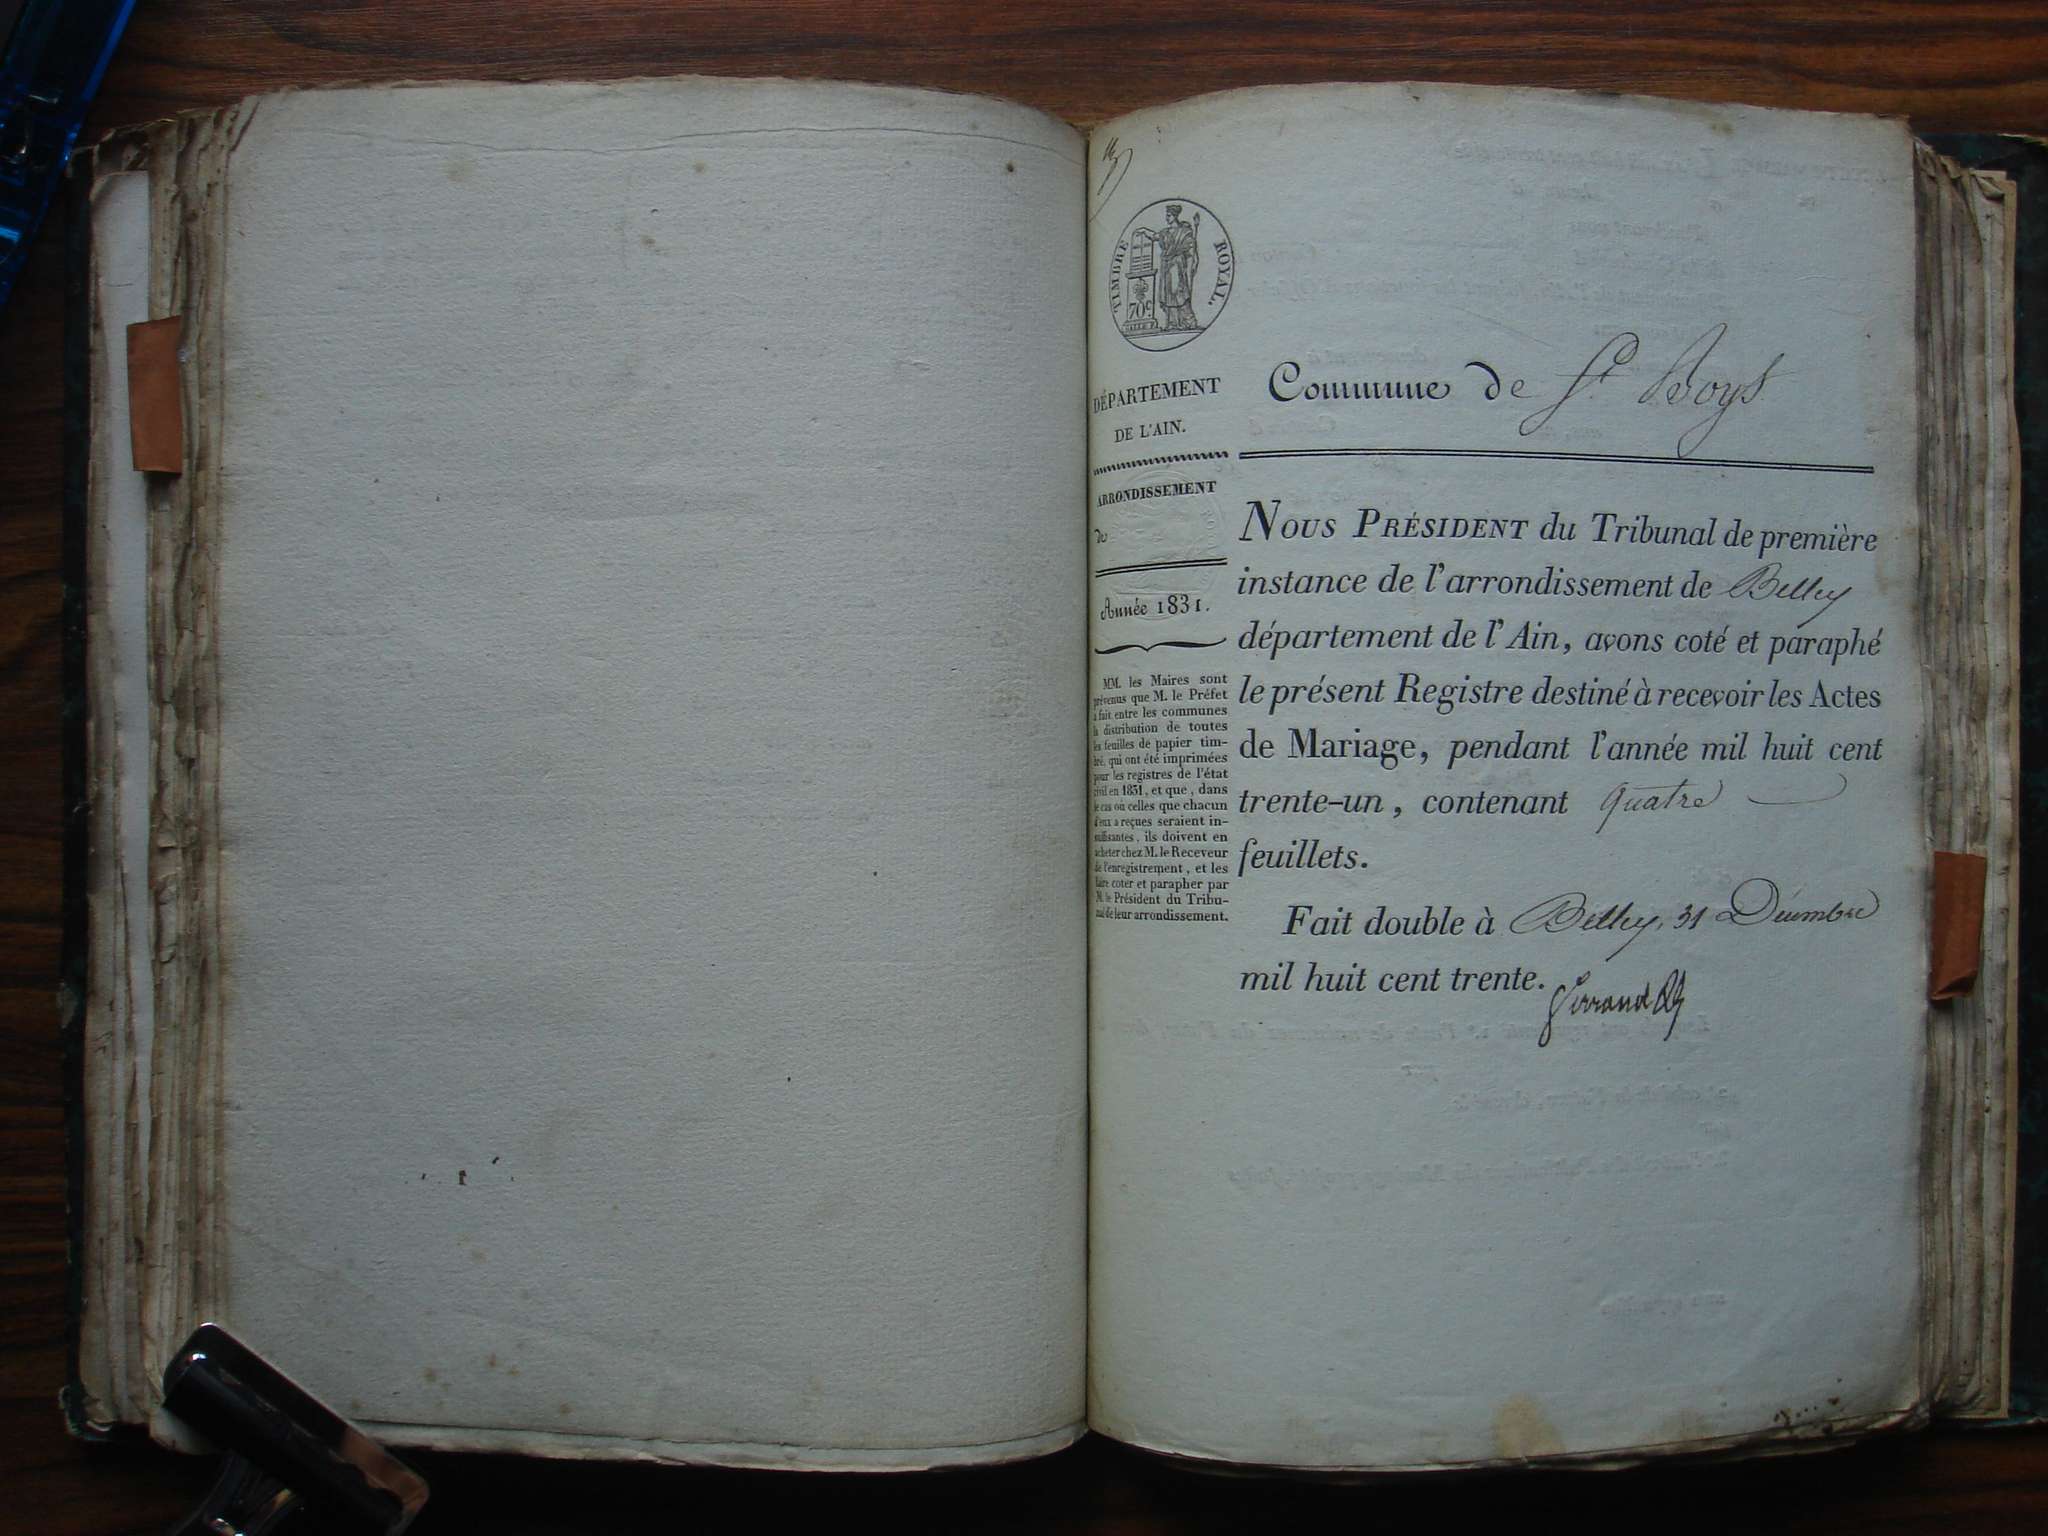 TIMBRE ROYAL.
70c
DÉPARTEMENT
DE L'AIN.
ARRONDISSEMENT
de
Année 1831.
MM. les Maires sont
prévenus que M. le Préfet
a fait entre les communes
la distribution de toutes
les feuilles de papier tim-
bré, qui ont été imprimées
pour les registres de l'état
civil en 1831, et que, dans
le cas où celles que chacun
d'eux a reçues seraient in-
suffisantes, ils doivent en
acheter chez M. le Receveur
de l'enregistrement, et les
faire coter et parapher par
M. le Président du Tribu-
nal de leur arrondissement.
Commune de St. Boys
NOUS PRÉSIDENT du Tribunal de première
instance de l'arrondissement de Belley
département de l'Ain, avons coté et paraphé
le présent Registre destiné à recevoir les Actes
de Mariage, pendant l'année mil huit cent
trente-un, contenant quatre
feuillets.
Fait double à Belley, 31 Décembre
mil huit cent trente.